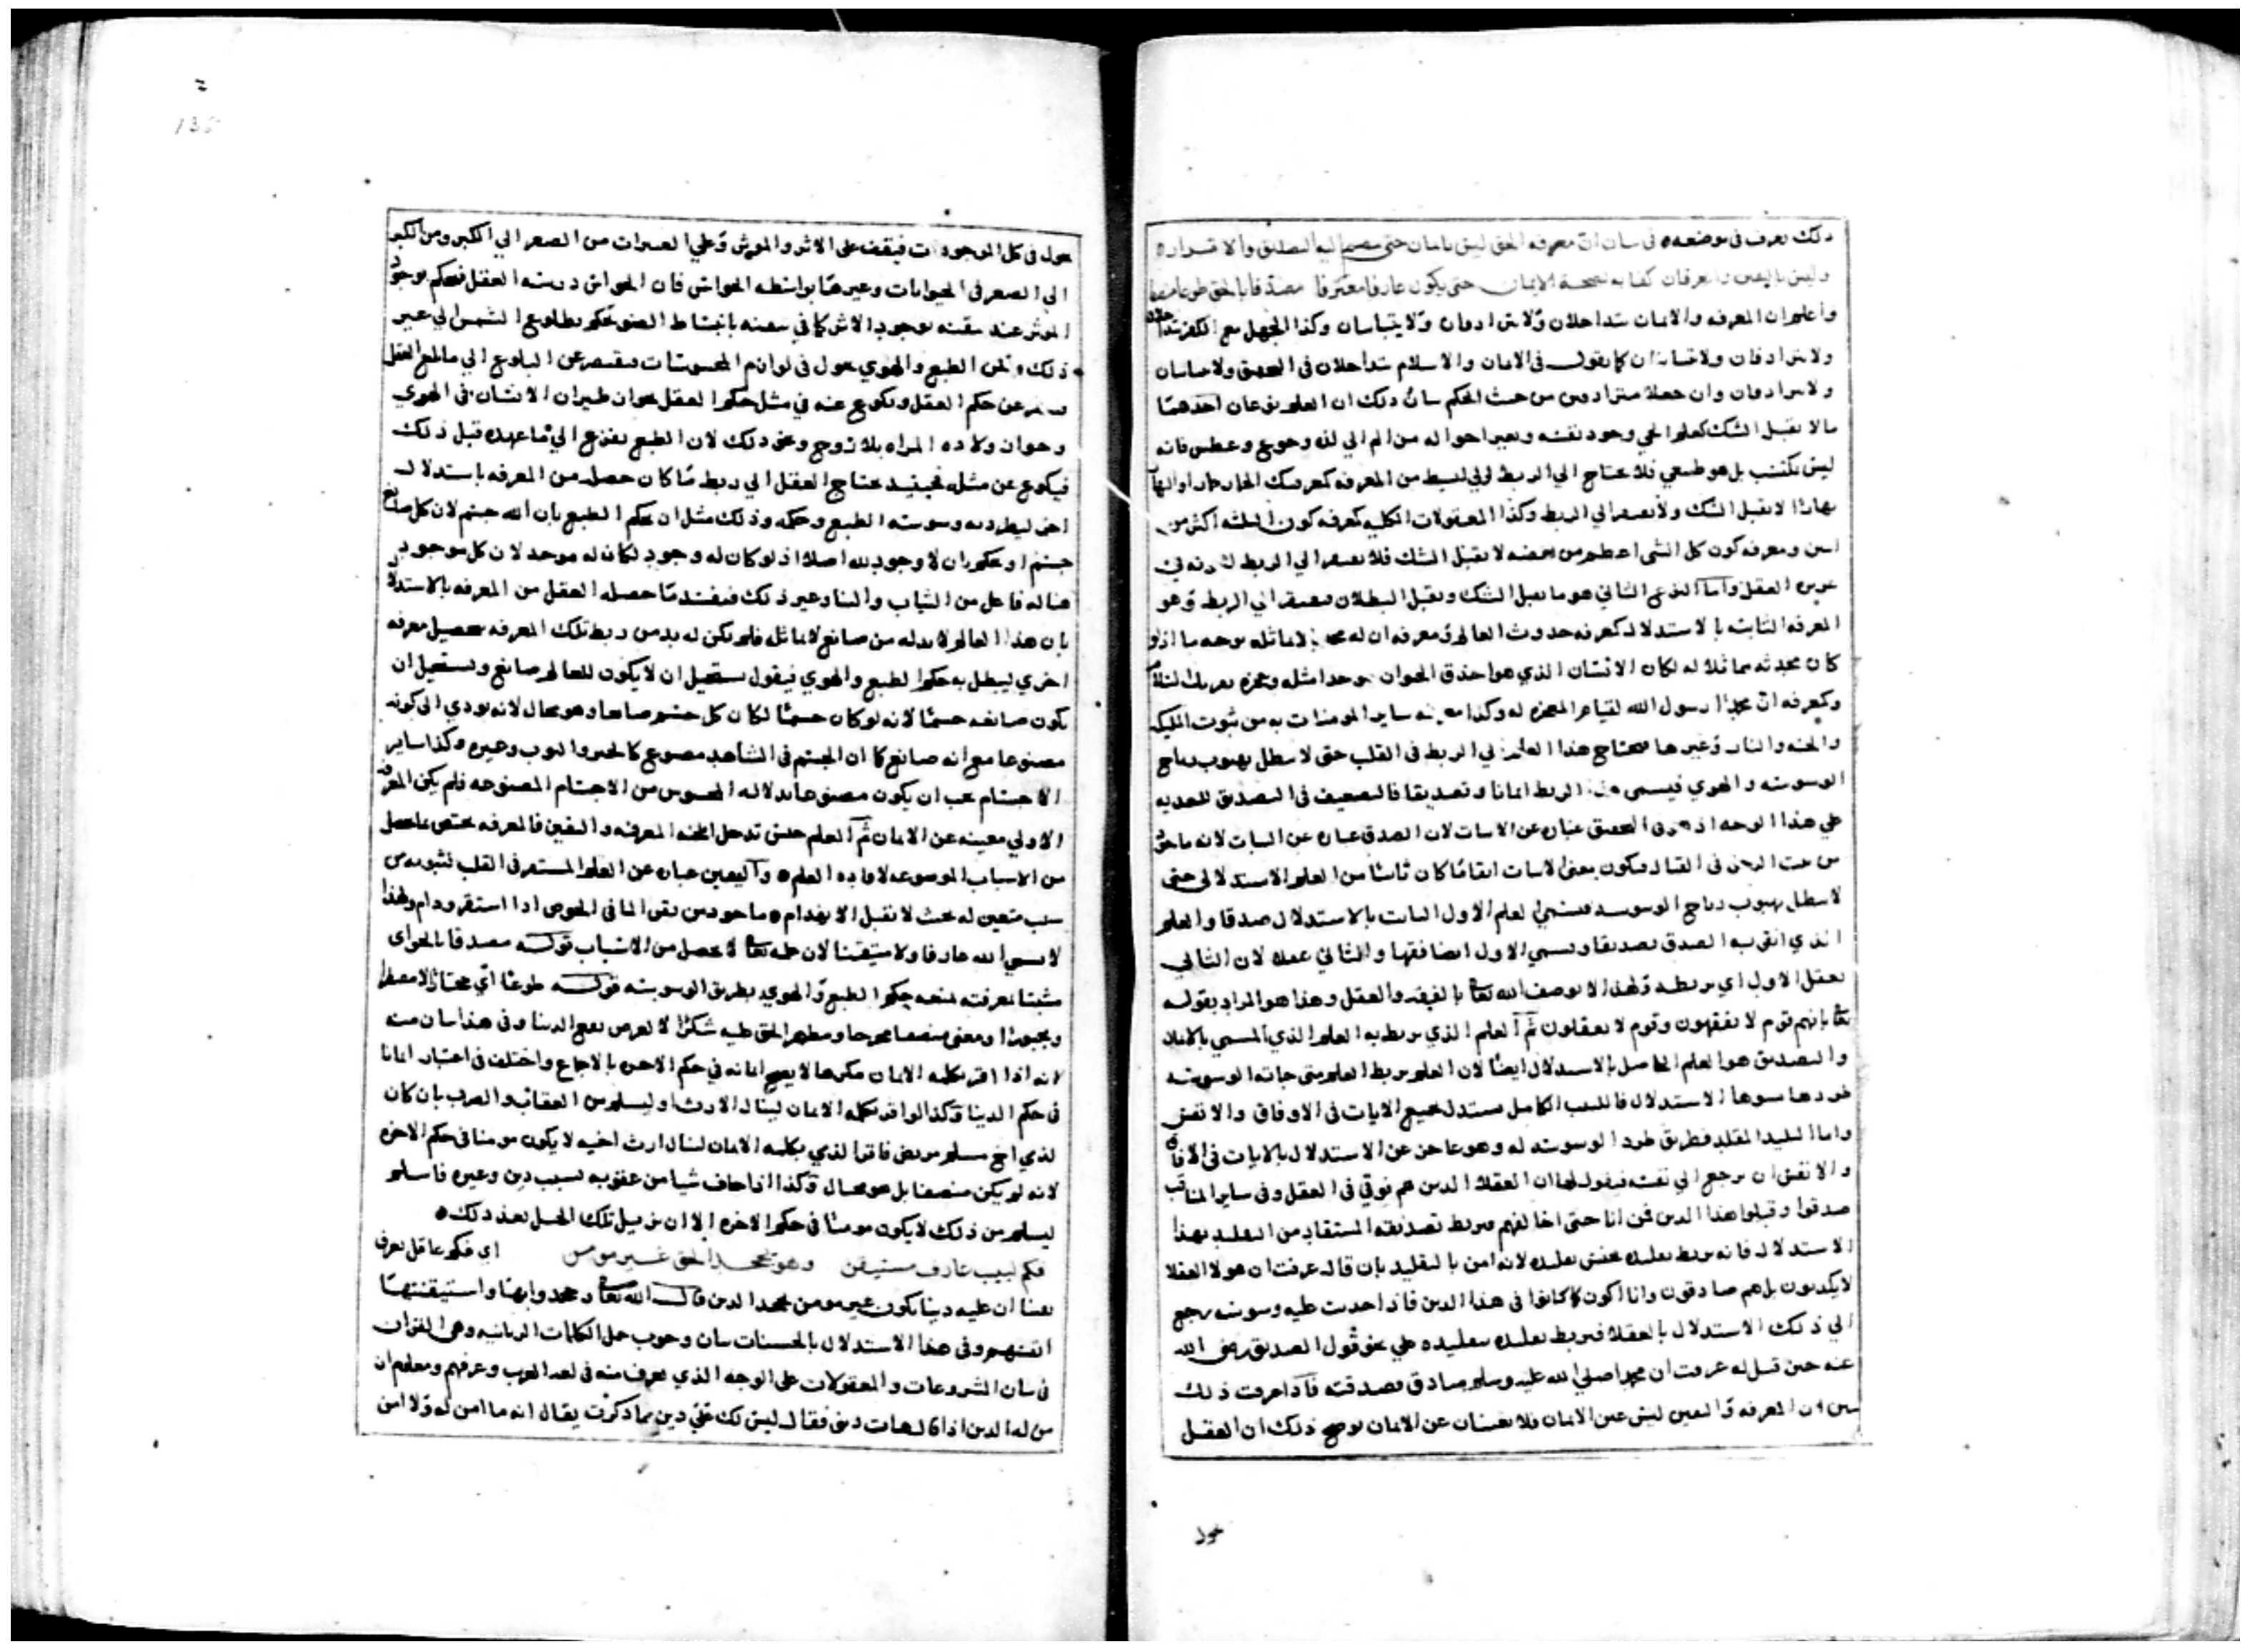 ذلك يعرف في موضعه في بيان ان معرفه الحق ليس بايمان حتى ينضم اليه التصديق والاقرار
وليس باليقين والعرفان كفايه لصحة الايمان حتى يكون عارفا معترفا مصدقا بالحق طوعا
واعلم ان المعرفه والايمان يتداخلان ولا يترادفان ولا يتباينان وكذا الجهل مع الكفر يتداخلان
ولا يترادفان ولا يتباينان كما يقول في الايمان والاسلام يتداخلان في ولا يتباينان
ولا يترادفان وان جعلا مترادفين من حيث الحكم بيان ذلك ان العلم نوعان احدهما
ما لا يقبل الشك كعلم الحي وجود نفسه وتغير احواله من الم الي لذه وجوع وعطش فانه
ليس بكسب بل هو طبيعي فلا يحتاج الي الربط
نهارا لا يقبل الشك ولا يفتقر الي الربط وكذا المعقولات الكليه كمعرفه كون الثلثه اكثر من
اثنين ومعرفه كون كل الشي اعظم من بعضه لا يقبل الشك فلا يفتقر الي الربط
العقل واما النوع الثاني هو ما يقبل الشك ويقبل البطلان فيفتقر الي الربط وهو
المعرفه الثابته بالاستدلال كمعرفه حدوث العالم ومعرفه ان له لا يماثله بوجه ما اذ لو
كان محدثه مماثلا له لكان الانسان الذي هو احذق الحيوان
وكمعرفه ان محمدا رسول الله لقيام المعجزه له وكذا ساير المومنات به من ثبوت المليكه
والجنه والنار وغيرها فيحتاج هذا العلم الي الربط في القلب حتى لا يبطل بهبوب رياح
الوسوسه والهوي فيسمى هذا الربط ايمانا وتصديقا فالتضعيف في التصديق للتعديه
علي هذا الوجه اذ التصديق عباره عن الاثبات لان الصدق عباره عن الثبات لانه ماخوذ
من في القتال فيكون بمعنى الاثبات ابقا ما كان ثابتا من العلم الاستدلالي حتى
لا يبطل بهبوب رياح الوسوسه فيسمي العلم الاول الثابت بالاستدلال صدقا والعلم
الذي ابقي به الصدق تصديقا ويسمي الاول ايضا فقها والثاني عقلا لان الثاني
يعقل الاول اي يربطه ولهذا لا يوصف الله تعالى بالفقه والعقل وهذا هو المراد بقوله
تعالى بانهم قوم لا يفقهون وقوم لا يعقلون ثم العلم الذي يربط به العلم الذي المسمي بالايمان
والتصديق هو العلم الحاصل بالاستدلال ايضا لان العلم يربط العلم متى جاته الوسوسه
الاستدلال فاللبيب الكامل يستدل بجميع الايات في الافاق والانفس
واما البليد المقلد فطريق طرد الوسوسه له وهو عاجز عن الاستدلال بالايات في الافاق
والانفس ان يرجع الي نفسه فيقول لها ان العقلا الذين هم فوقي في العقل وفي ساير المناقب
صدقوا وقبلوا هذا الدين فمن انا حتى اخالفهم فيربط تصديقه المستفاد من التقليد بهذا
الاستدلال فانه يربط تقليده لانه امن بالتقليد بان قال عرفت ان هولا العقلا
لا يكذبون بل هم صادقون وانا اكون كما كانوا في هذا الدين فاذا احدث عليه وسوسه يرجع
الي ذلك الاستدلال بالعقلا فيربط تقليده علي نحو قول الصديق رضى الله
عنه حين قيل له عرفت ان محمدا صلى الله عليه وسلم صادق فصدقته فاذا عرفت ذلك
تبين ان المعرفه واليقين ليس عين الايمان فلا يغنيان عن الايمان يوضح ذلك ان العقل
يجول
يجول في كل الموجودات فيقف على الاثر والموثر وعلي العبرات من الصغر الي الكبر ومن الكبر
الي الصغر في الحيوانات وغيرها بواسطه الحواس فان الحواس العقل فيحكم بوجود
الموثر عند تيقنه بوجود الاثر كما في تيقنه بانبساط الضو يحكم بطلوع الشمس الي غير
ذلك ولكن الطبع والهوي يجول في لوازم المحسوسات فيقتصر عن البلوغ الي ما بلغ العقل
عن حكم العقل ويكوع عنه في مثل حكم العقل بجواز طيران الانسان في الهوي
وجواز ولاده المراه بلا زوج ونحو ذلك لان الطبع يفزع الي ما عهده قبل ذلك
فيكوع عن مثله فحينيذ يحتاج العقل الي ربط ما كان حصله من المعرفه باستدلال
اخر ليطرد به وسوسه الطبع وحكمه وذلك مثل ان يحكم الطبع بان الله جسم لان كل صانع
جسم او يحكم بان لا وجود لله اصلا اذ لو كان له وجود لكان له موجد لان كل موجود
هنا له فاعل من الثياب والبنا وغير ذلك فيفسد ما حصله العقل من المعرفه بالاستدلال
بان هذا العالم لابد له من صانع لا يماثله فلم يكن له بد من ربط تلك المعرفه بتحصيل معرفه
اخري ليبطل به حكم الطبع والهوي فيقول يستحيل ان لا يكون للعالم صانع ويستحيل ان
يكون صانعه جسما لانه لو كان جسما لكان كل جسم صانعا وهو محال لانه يودي الى كونه
مصنوعا مع انه صانع كما ان الجسم في الشاهد مصنوع كالحجر والثوب وغيره وكذا ساير
الاجسام يجب ان يكون مصنوعا بدلاله المحسوس من الاجسام المصنوعه فلم يكن المعرفه
الاولي مغنيه عن الايمان ثم العلم جنس تدخل تحته المعرفه واليقين فالمعرفه يختص بما حصل
من الاسباب الموضوعه لافاده العلم واليقين عباره عن العلم المستقر في القلب لثبوته من
سبب متعين له بحيث لا يقبل الانهدام ماخوذ من يقن الما في الحوض اذا استقر ودام ولهذا
لا يسمي الله عارفا ولا متيقنا لان علمه تعالى لا يحصل من الاسباب قوله مصدقا بالحق اي
مثبتا معرفته بمنعه حكم الطبع والهوي بطريق الوسوسه قوله طوعا اي مختارا لا مضطرا
ومجبورا ومعنى الحق عليه شكرا لا لغرض نفع الدنيا وفي هذا بيان منه
لانه اذا اقر بكلمه الايمان مكرها لا يصح ايمانه في حكم الاخره بالاجماع واختلف في اعتبار ايمانا
في حكم الدنيا وكذا لو اقر بكلمه الايمان لينال الارث او ليسلم من العقاب والضرب بان كان
لذمي اخ مسلم مريض فاقر الذمي بكلمه الايمان لينال ارث اخيه لا يكون مومنا في حكم الاخره
لانه لم يكن منصفا بل هو وكذا اذا خاف شيا من عقوبه بسبب دين وغيره فاسلم
ليسلم من ذلك لا يكون مومنا في حكم الاخره الا ان يزيل تلك بعد ذلك
فكم لبيب عارف مستيقن وهو بجحد الحق غير مومن اي فكم عاقل يعرف
يقينا ان عليه دينا يكون غير مومن بجحد الدين قال الله تعالى وجحدوا بها واستيقنتها
انفسهم وفي هذا الاستدلال بالحسيات بيان وجوب حمل الكلمات الربانيه وهي القران
في بيان المشروعات والمعقولات على الوجه الذي يعرف منه في لغه العرب وعرفهم ومعلوم ان
من له الدين اذا قال هات ديني فقال ليس لك علي دين مما ذكرت يقال انه ما امن له ولا امن